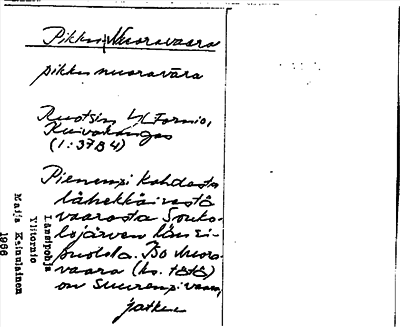 Pikku Nuoravaara
pikku nuoravāra
Ruotsin Y[Tornio,
Kuivakangas
(1:37B4)
Pienempi kahdesta
läkekkäisestä
vaarasta Souko-
lojärven länsi-
puolella. Iso Nuora-
vaara (ks. tätä)
on suurempi vaara,
jatkuu
Länsipohja
Ylitornio
Maija Kainulainen
1966